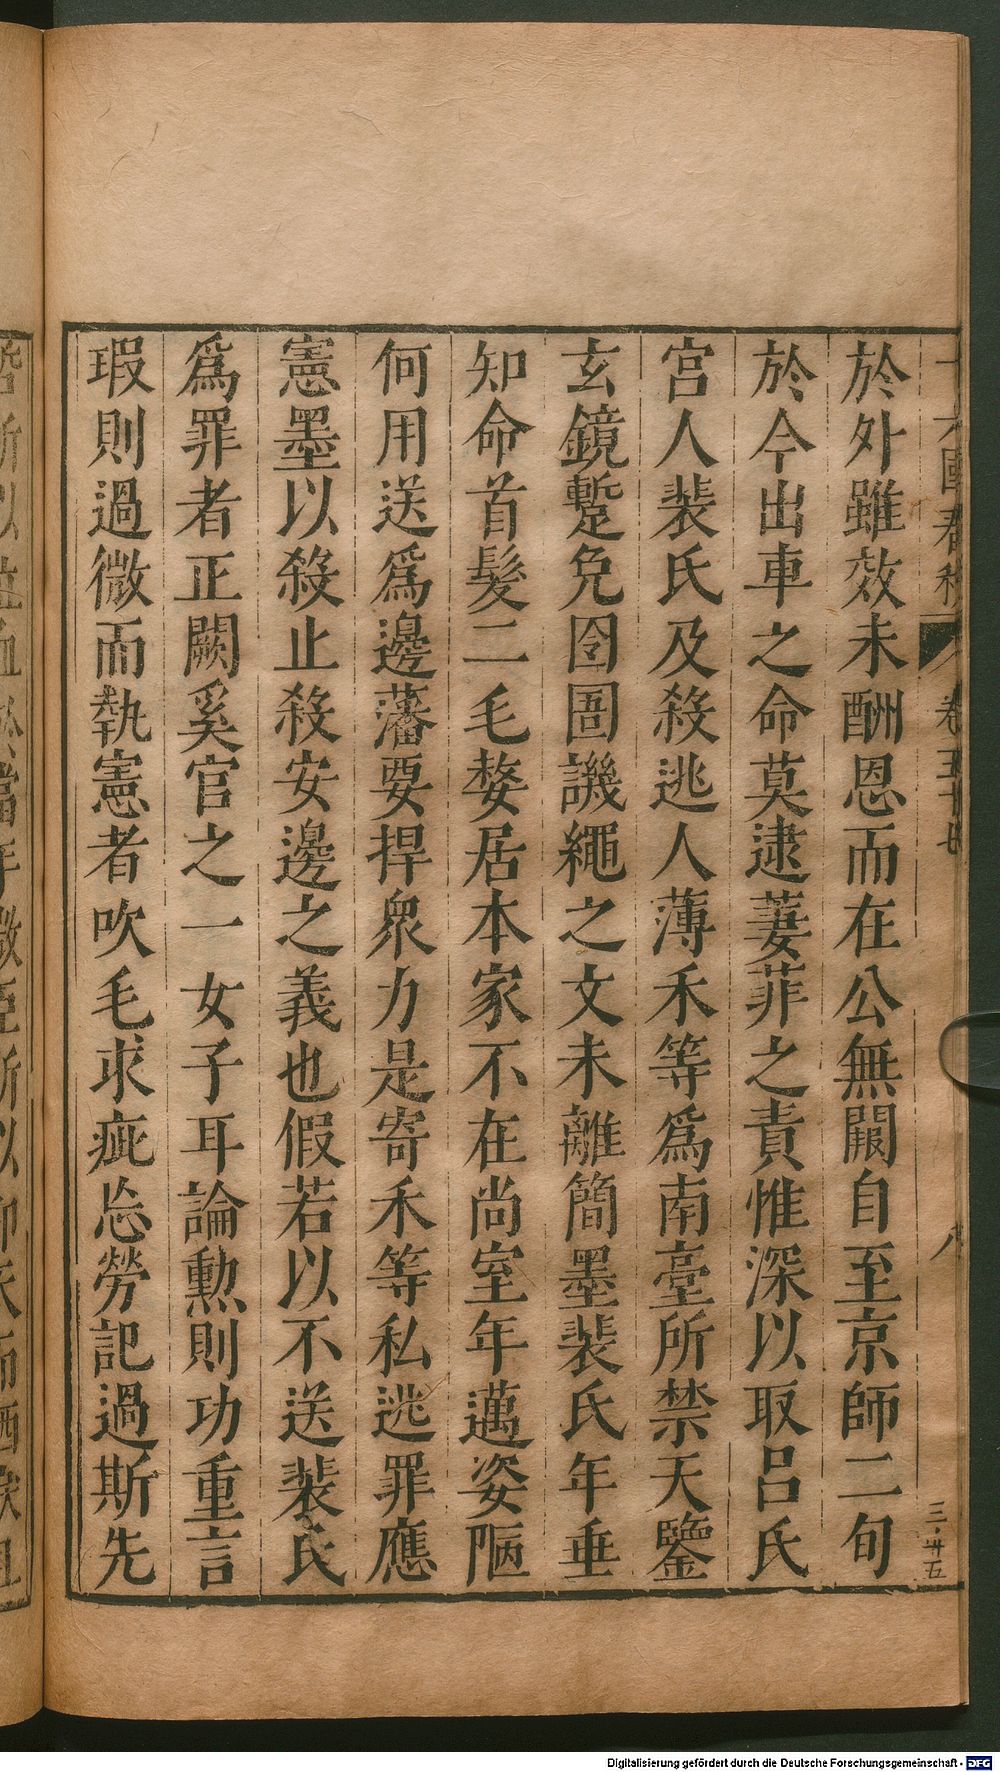 十六國春秋 卷五十七 八
於外雖效未酬恩而在公無闕自至京師二旬
於今出車之命莫逮萋菲之責惟深以取呂氏
宮人裴氏及殺逃人薄禾等爲南臺所禁天鑒
玄鏡蹔免囹圄譏繩之文未離簡墨裴氏年垂
知命首髮二毛嫠居本家不在尚室年邁姿陋
何用送爲邊藩要捍衆力是寄禾等私逃罪應
憲墨以殺止殺安邊之義也假若以不送裴氏
爲罪者正闕奚官之一女子耳論勲則功重言
瑕則過微而執憲者吹毛求疵忘勞記過斯先
三·廿五
Digitalisierung gefördert durch die Deutsche Forschungsgemeinschaft - DFG